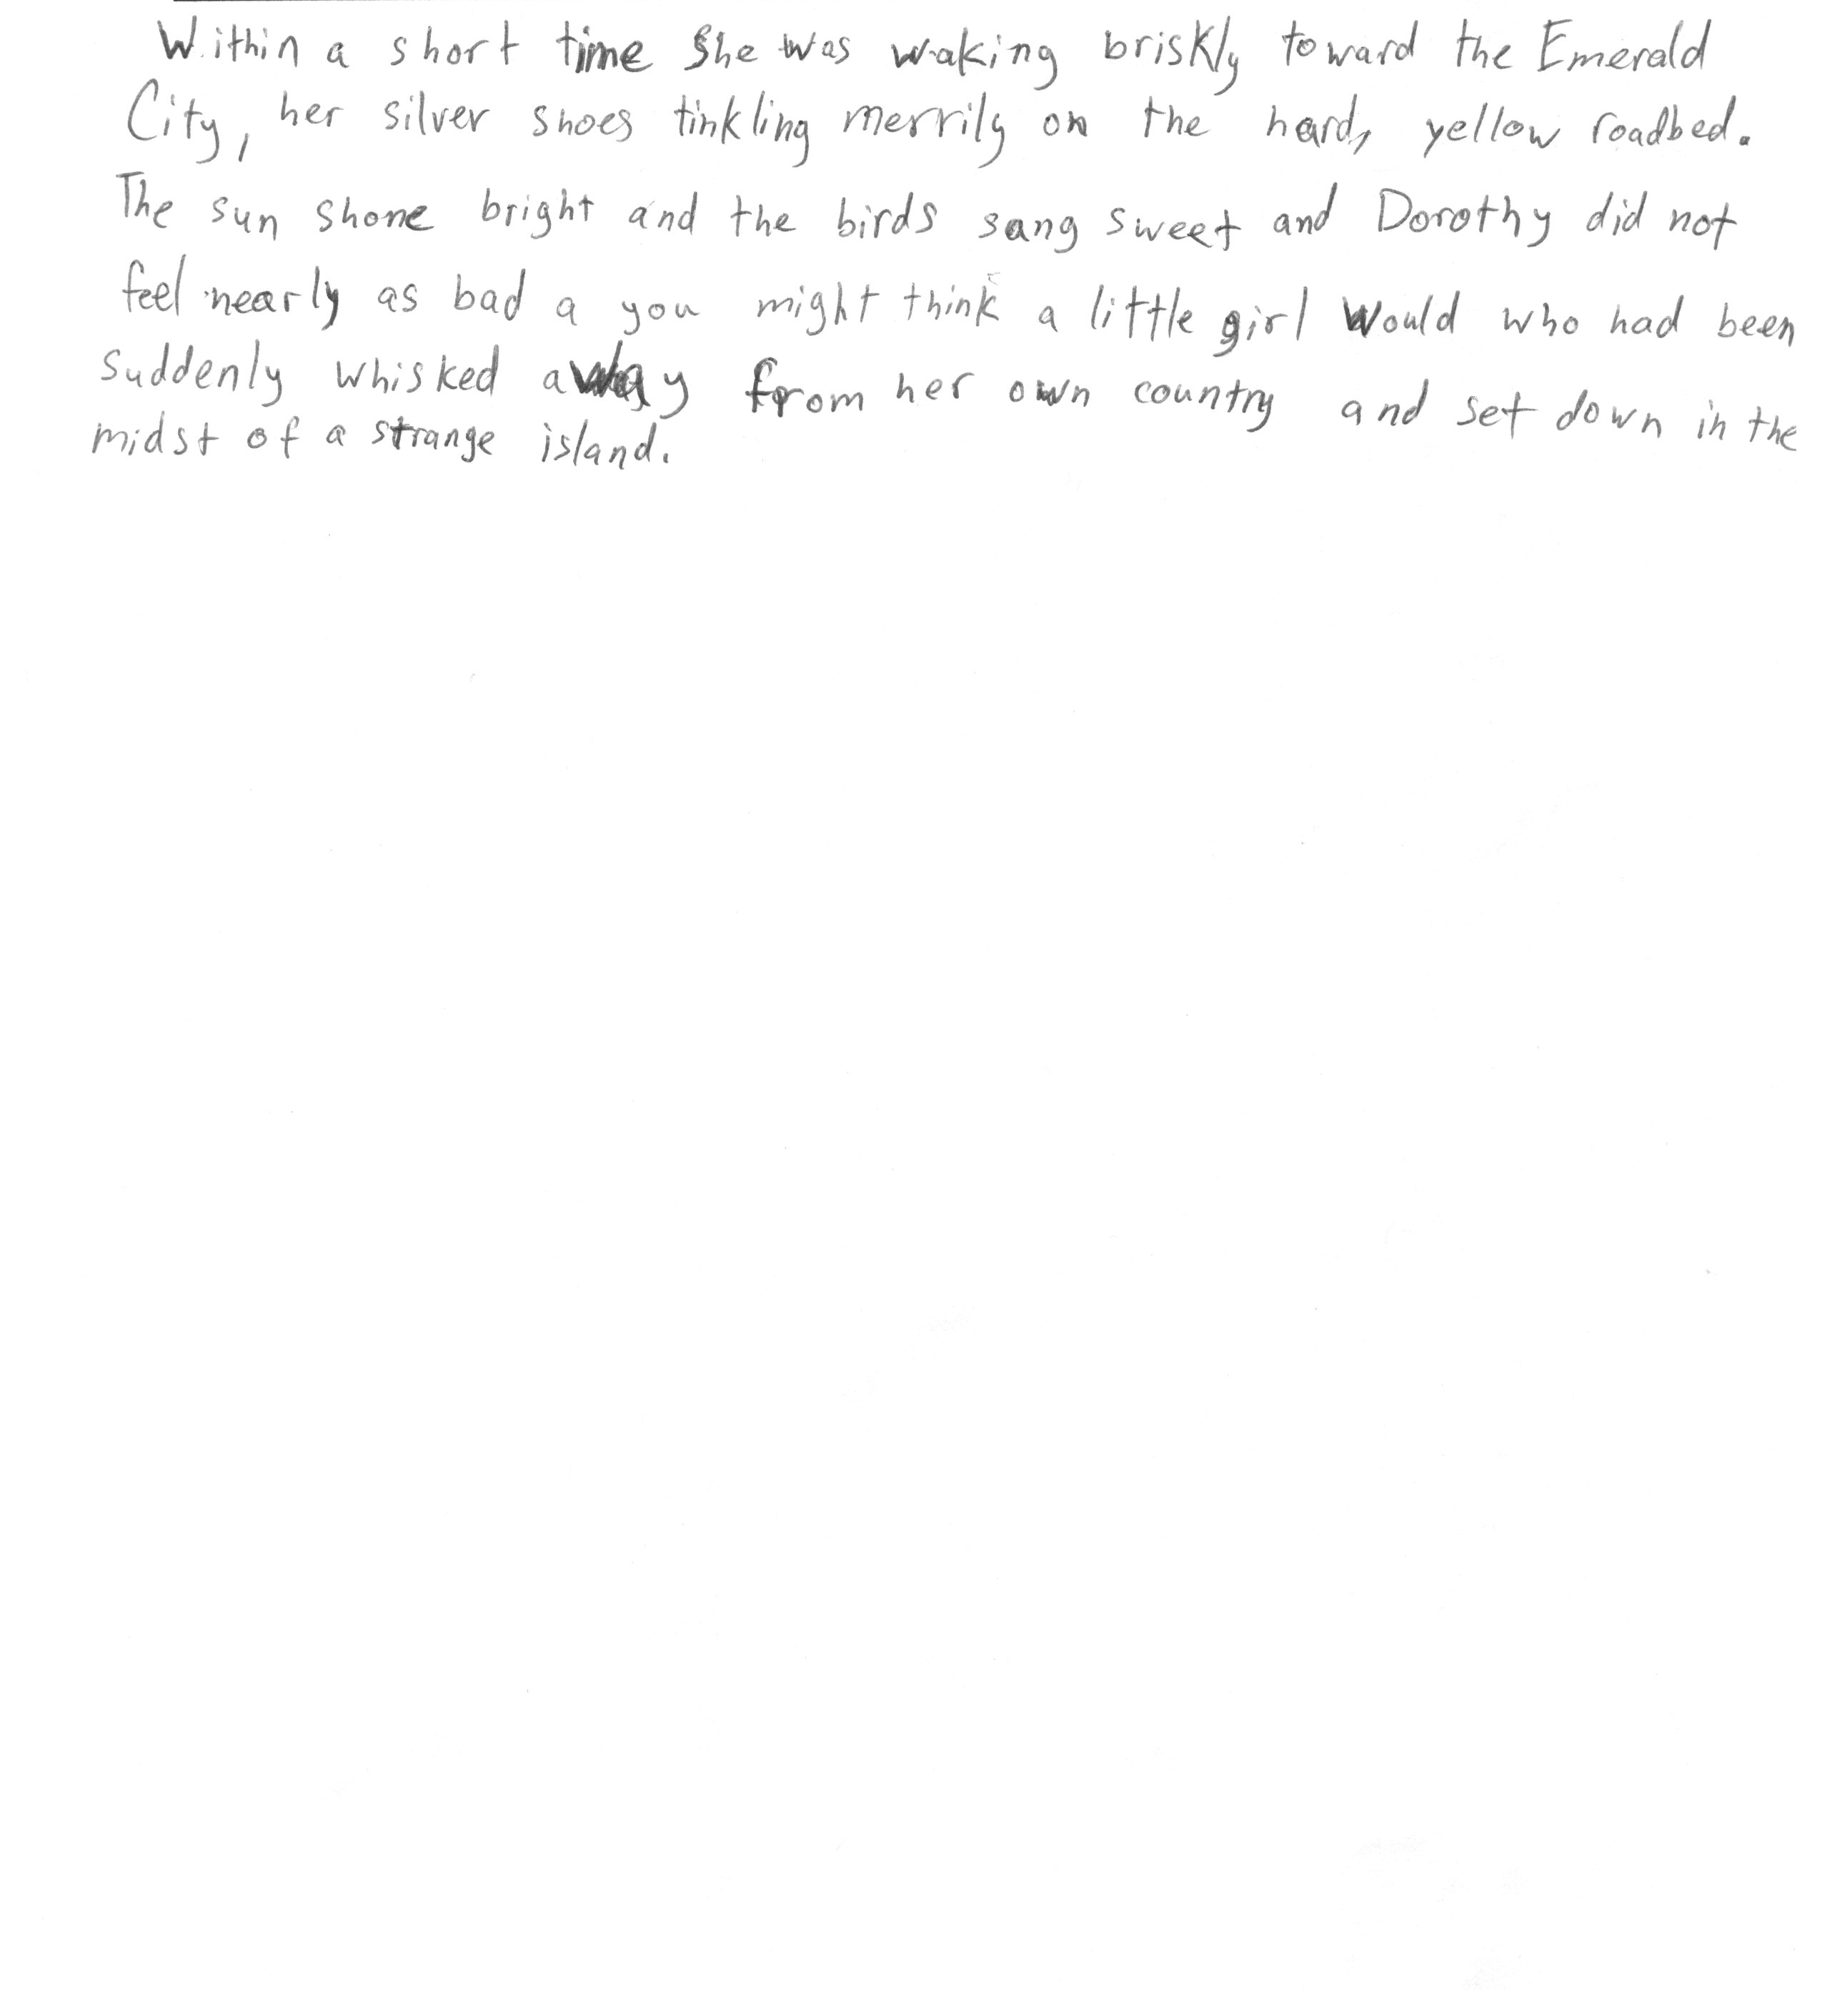 Within a short time she was waking briskly toward the Emerald
City, her silver shoes tinkling merrily on the hard, yellow roadbed.
The sun shone bright and the birds sang sweet and Dorothy did not
feel nearly as bad a you might think a little girl would who had been
suddenly whisked away from her own country and set down in the
midst of a strange island.